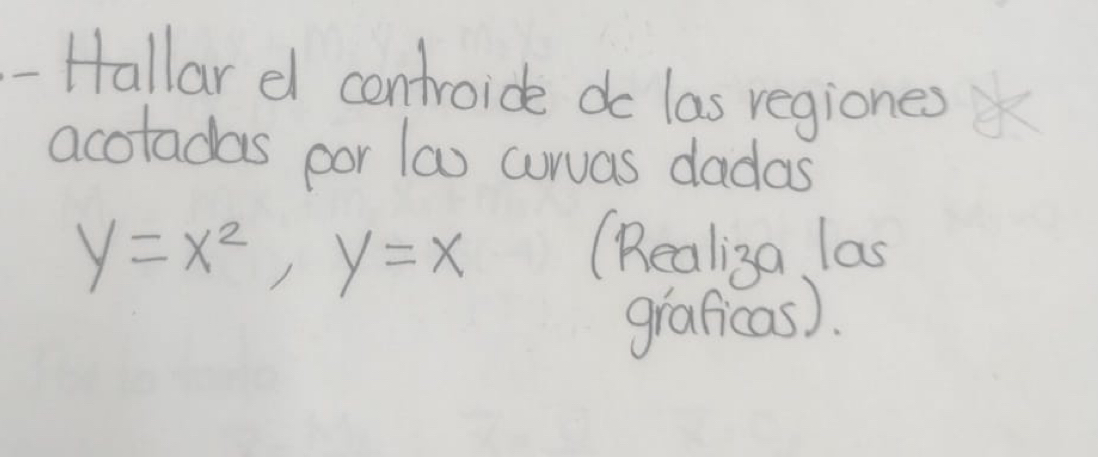 .- Hallar el centroide de las regiones
acotadas por las curvas dadas
y = x², y = x (Realiza las
gráficas).